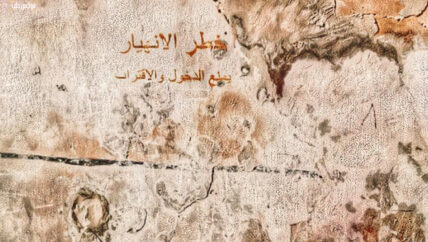 خطر الانهيار
يمنع الدخول والاقتراب